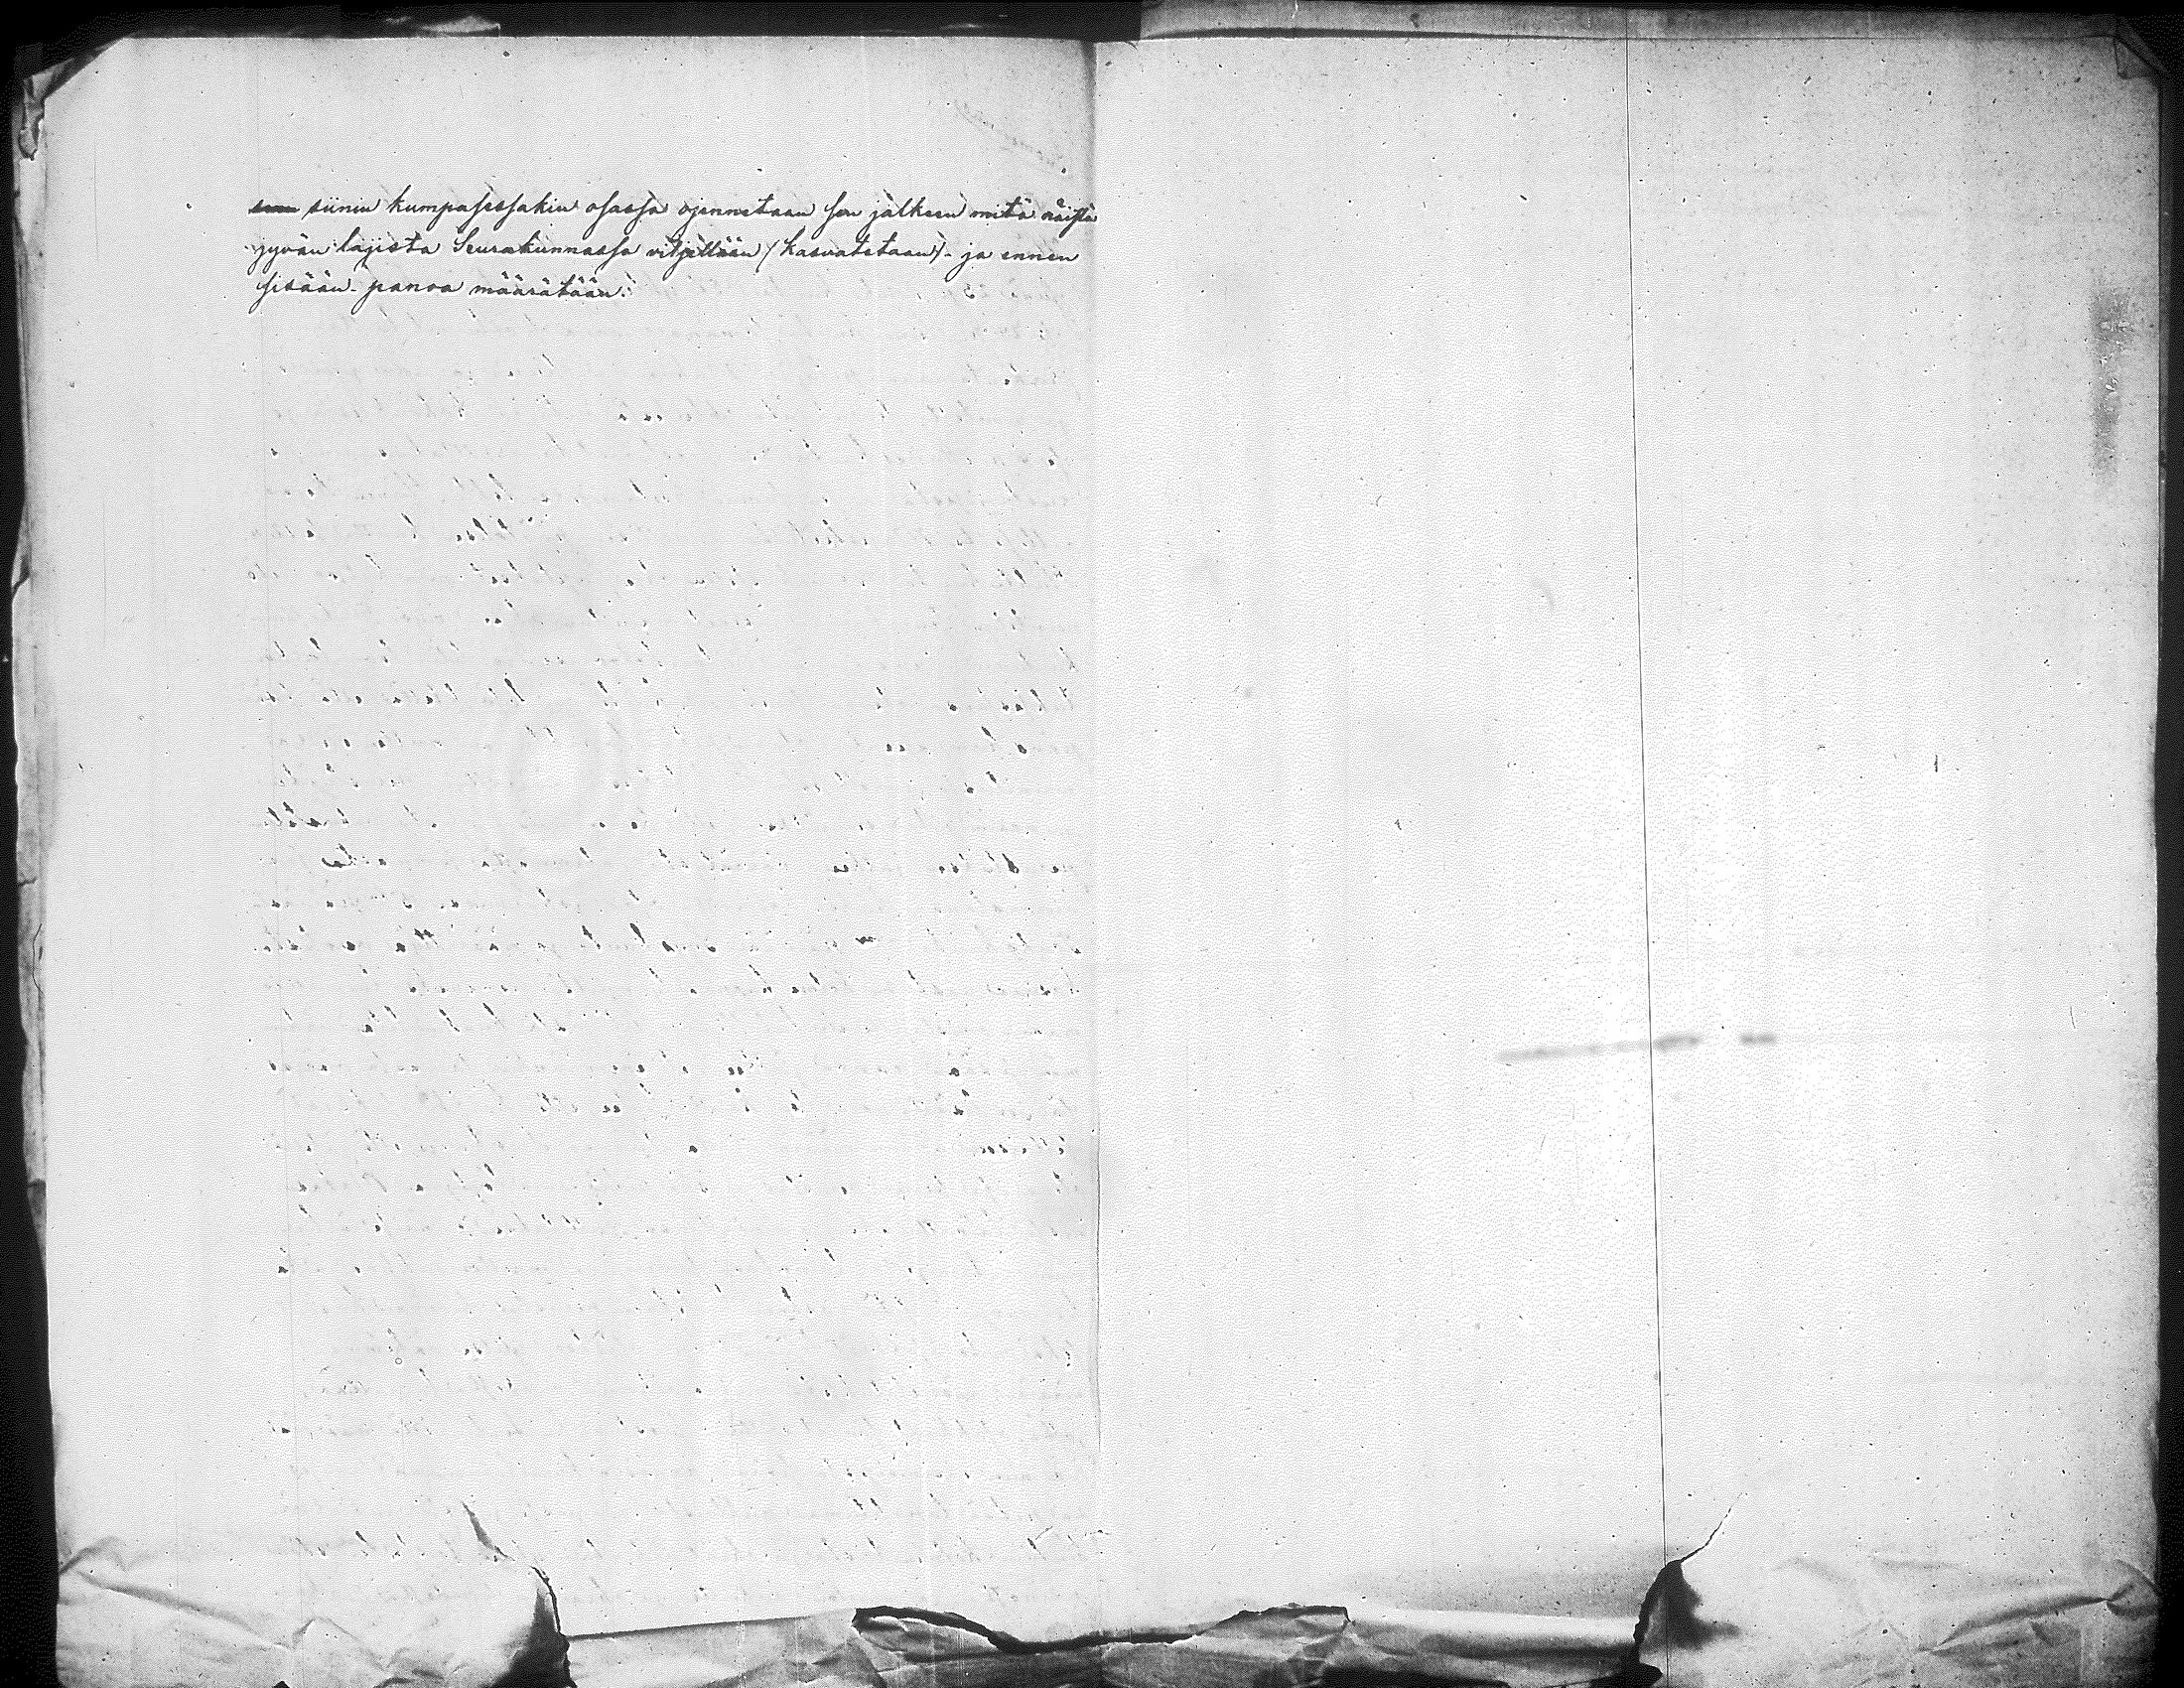 siiniu kumpasessakin osassa ojennetaan sen jälkeen mitä näistä
jyvän lajista Seurakunnassa viljellään (kasvatetaan) - ja ennen
sisään-panoa määrätään.